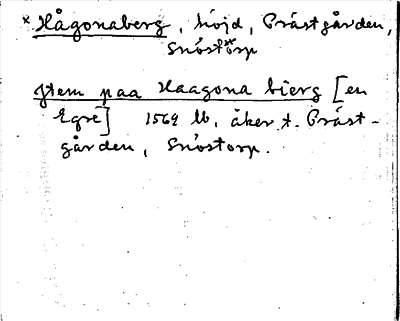 × Hågonaberg, höjd, Prästgården,
Snöstorp
Jtem paa Haagona bierg [en
Egre] 1569 lb, åker t. Präst-
gården, Snöstorp.